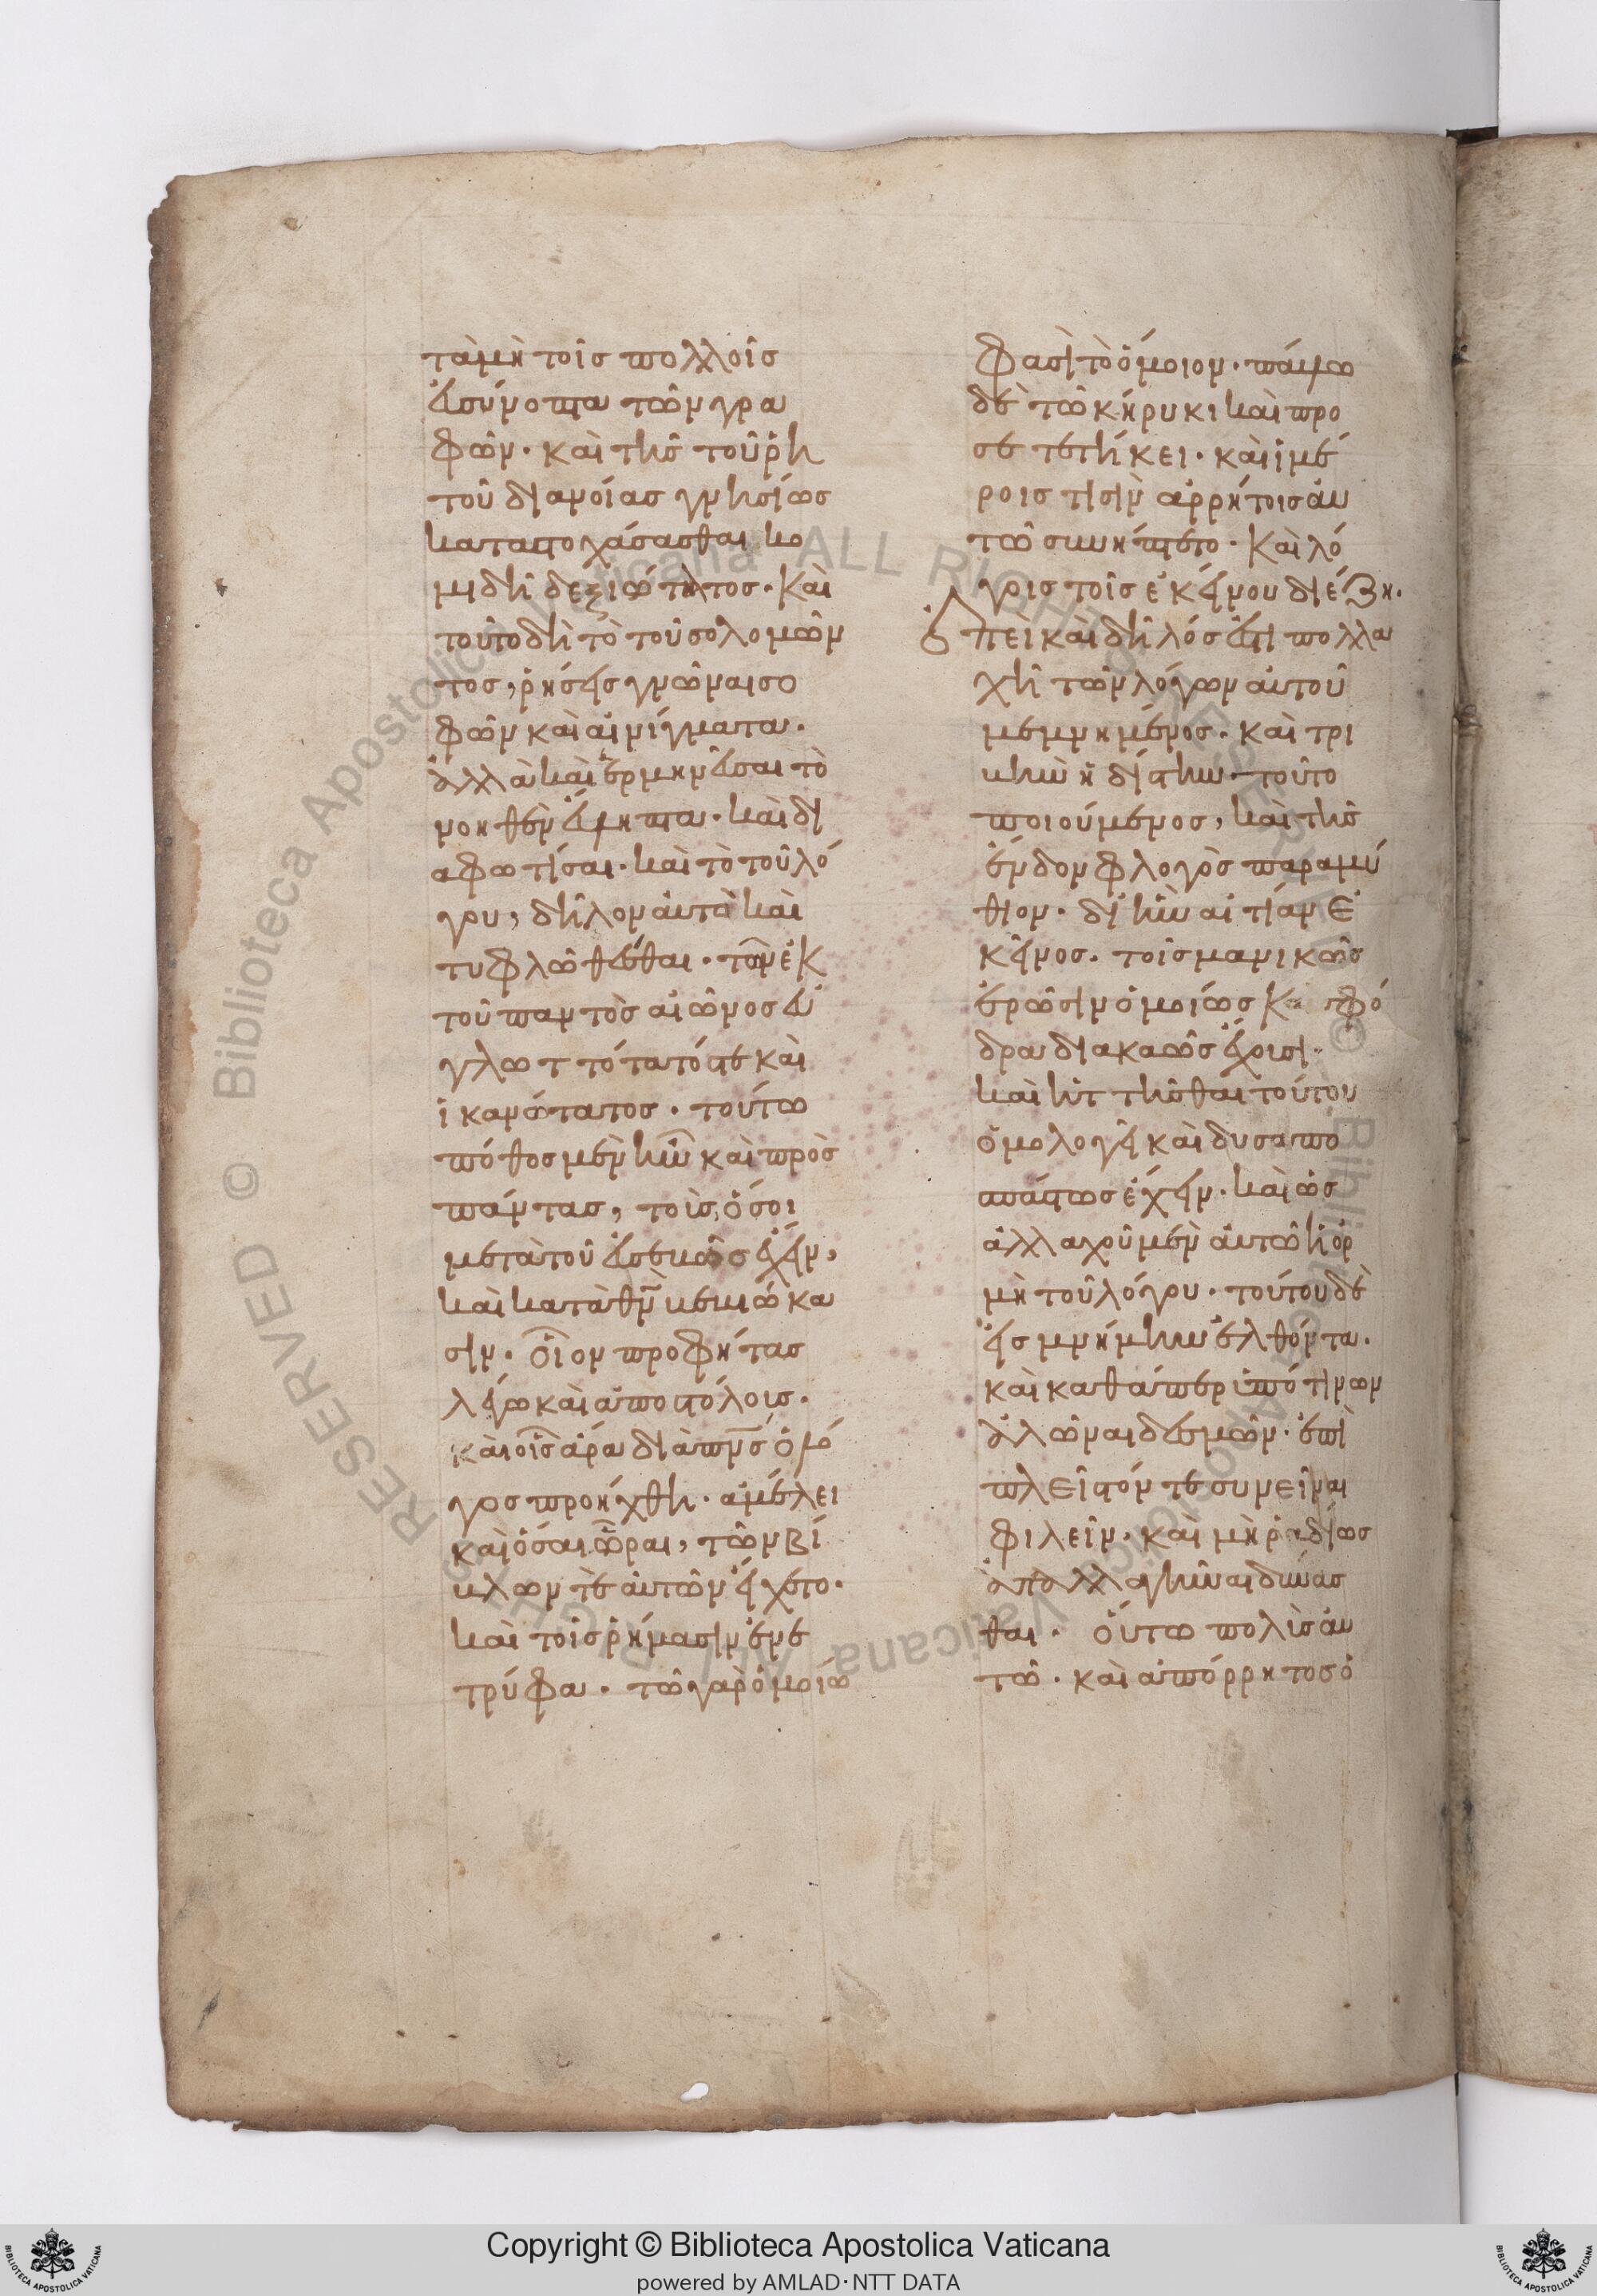 τὰ μὴ τοῖς πολλοῖς
εὐσύνοπτα τῶν γρα
φῶν· καὶ τῆς τοῦ ῥη
τοῦ διανοίας γνησίως
καταστοχάσασθαι κο
μιδῇ δεξιώτατος· καὶ
τοῦτο δὴ τὸ τοῦ σολομῶν
τος, ῥήσεις γνῶναι σο
φῶν καὶ αἰνίγματα·
ἀλλὰ καὶ ἑρμηνεῦσαι τὸ
νοηθὲν εὐμήχανα· καὶ δι
αφωτίσαι· καὶ τὸ τοῦ λό
γου, δῆλον αὐτὰ καὶ
τυφλῷ θέσθαι· τῶν ἐκ
τοῦ παντὸς αἰῶνος εὐ
γλωττότατός τε καὶ
ἱκανώτατος· τούτω
πόθος μὲν ἦν καὶ πρὸς
πάντας, τοῖς ὅσοι
μετὰ τοῦ εὐσεβῶς ἔχειν,
καὶ κατὰ θν κεκινήκα
σιν· οἷον προφήτας
λέγω καὶ ἀποστόλοις·
καὶ οἷς ἄρα διὰ πνς ὁ λό
γος προήχθη· ἀμέλει
καὶ ὅσαι ὧραι, τῶν βί
βλων τὲ αὐτῶν εἴχετο·
καὶ τοῖς ῥήμασιν ἐνε
τρύφα· τῷ γὰρ ὁμοίω
φασὶ τὸ ὅμοιον· πάνυ
δὲ τῷ κήρυκι καὶ προ
σετετήκει· καὶ ἱμέ
ροις τισὶν ἀρρήτοις αὐ
τῷ συνήπτετο· καὶ λό
γοις τοῖς ἐκείνου διέζη·
ἐπεὶ καὶ δῆλός ἐστι πολλα
χῆ τῶν λόγων αὐτοῦ
μεμνημένος· καὶ τρι
βὴν ἡδίστην τοῦτο
ποιούμενος, καὶ τῆς
ἔνδον φλογὸς παραμύ
θιον· δι' ἣν αἰτίαν ἐ
κεῖνος· τοῖς μανικῶς
ἐρῶσιν ὁμοίως καὶ σφό
δρα διακαῶς ἔχουσι·
καὶ ἡττῆσθαι τούτου
ὁμολογεῖ καὶ δυσαπο
σπάστως ἔχειν· καὶ ὡς
ἀλλαχοῦ μὲν αὐτῷ ἡ ὁρ
μὴ τοῦ λόγου· τούτου δὲ
εἰς μνήμην ἐλθόντα·
καὶ καθάπερ ὑπό τινων
ἁλῶναι δεσμῶν· ἐπὶ
πλεῖστόν τε συνεῖναι
φιλεῖν· καὶ μὴ ῥαδίως
ἀπαλλαγῆναι δύνασ
θαι· οὕτω πολὺς αὐ
τῷ· καὶ ἀπόρρητος ὁ